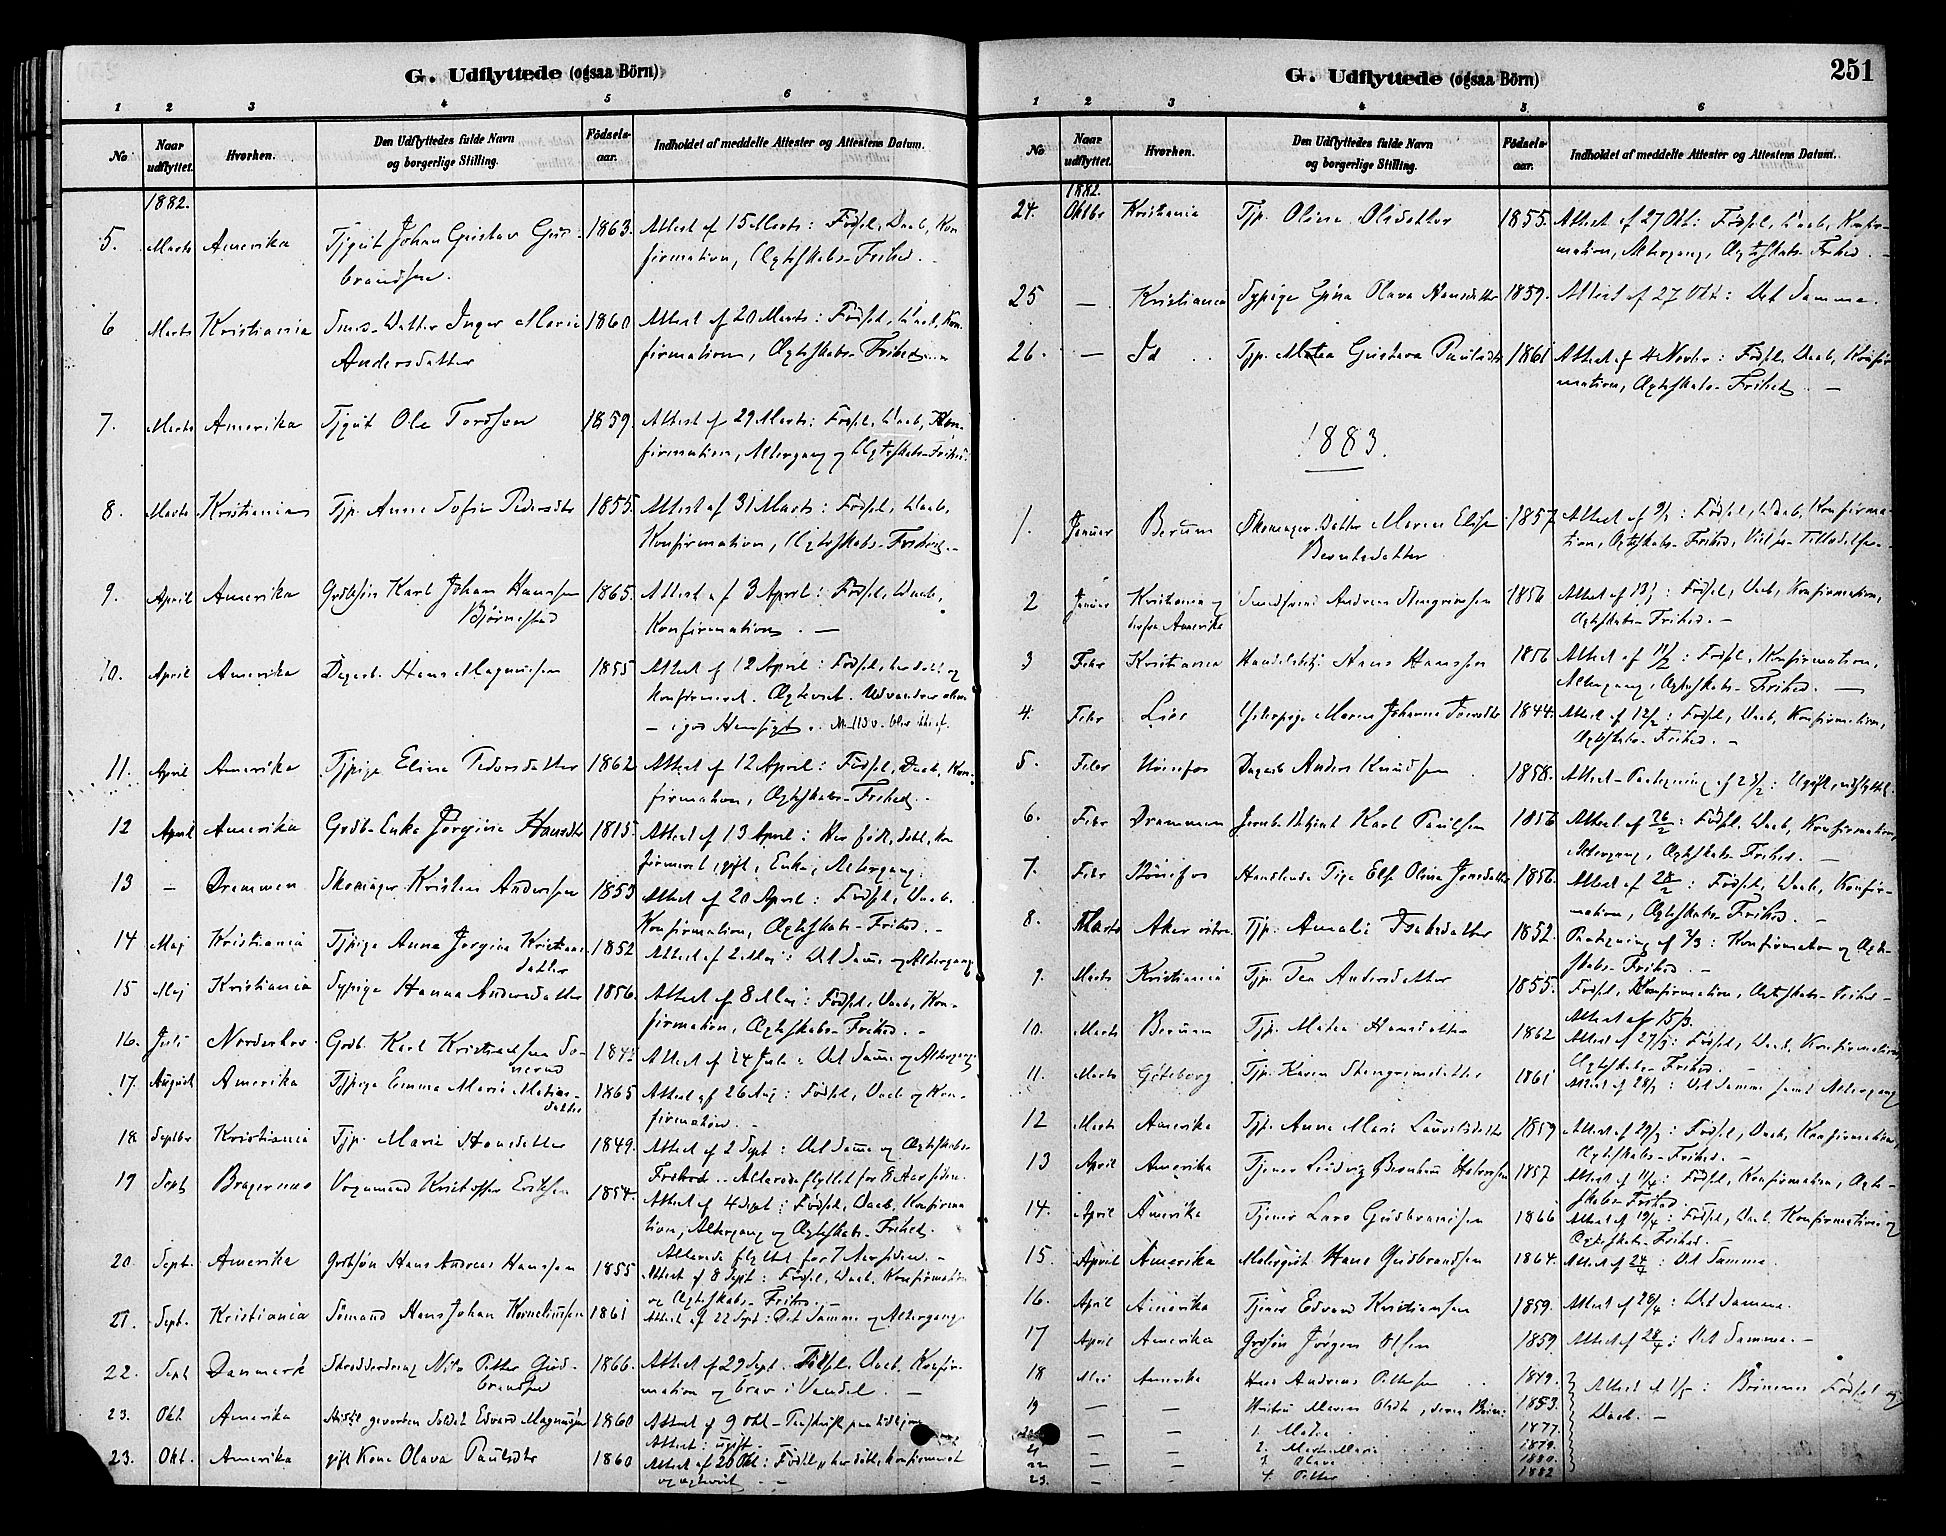 G. Udflyttede (ogsaa Börn)
1 2 3 4 5 6
No Naar udflyttet. Hvorhen. Den Udflyttedes fulde Navn og borgerlige Stilling. Födsels-aar. Indholdet af meddelte Attester og Attestens Datum.
1882.
5. Marts Amerika Tjgut Johan Gustav Gul- 1863. Attest af 15 Marts: Fødsel, Daab, Kon
brandsen. firmation, Ægteskabs-Frihed.
6 Marts Kristiania Datter Inger Marie 1860 Attest af 20 Marts: Fødsel, Daab, Kon-
Andersdatter firmation, Ægteskabs-Frihed.
7. Marts Amerika Tjgut Ole Tordsen 1859. Attest af 29 Marts: Fødsel, Daab, Kon-
firmation, Altergang og Ægteskabs-Frihed.
8. Marts Kristiania Tjp. Anne Sofie Pedersdtr 1855. Attest af 31 Marts: Fødsel, Daab,
Konfirmation, Ægteskabs-Frihed. -
9. April Amerika Grdbsøn Karl Johan Hansen 1865. Attest af 3 April: Fødsel, Daab,
Bjørnestad Konfirmation. -
10. April Amerika Dagarb. Hans Magnussen 1855 Attest af 12 April: Født, her døbt og
konfirmeret. Ægteviet. Udvandrer
- i god Hensigt.
11. April Amerika Tjpige Eline Pedersdatter 1862 Attest af 12 April: Fødsel, Daab, Kon-
firmation, Ægteskabs-Frihed. -
12 April Amerika Grdb-Enke Jørgine Hansdtr 1815. Attest af 13 April: Her født, døbt, kon
firmeret, gift, Enke, Altergang.
13 - Drammen Skomager Kristen Andersen 1853 Attest af 20 April: Fødsel, Daab,
Konfirmation, Ægteskabs-Frihed. -
14 Maj Kristiania Tjpige Anna Jørgine Kristians 1852 Attest af 2 Maj: Det Samme og Altergang
datter
15 Maj Kristiania Sypige Hanna Andersdatter 1856. Attest af 8 Maj: Fødsel, Daab, Kon-
firmation, Ægteskabs-Frihed. -
16. Juli Norderhov Grdb. Karl Kristiansen Attest af 24 Juli: Det Samme og Altergang
17. August Amerika Tjpige Emma Marie Matias- 1865 Attest af 26 Aug: Fødsel, Daab og Kon-
datter firmation. -
18. Septbr Kristiania Tjp. Marie Hansdatter 1849. Attest af 2 Sept: Det Samme og Ægteskabs-
Frihed. Allerede flyttet for 8 Aar siden.
19 Sept Bragernes Vognmand Kristoffer Eriksen 1854. Attest af 4 Sept: Fødsel, Daab, Konfirma
tion, Altergang og Ægteskabs-Frihed.
Allerede flyttet for 7 Aar siden. -
20. Sept. Amerika Grdbsøn Hans Andreas Hansen 1855 Attest af 8 Sept: Fødsel, Daab, Konfirmation
og Ægteskabs-Frihed. -
21. Sept. Kristiania Sømand Hans Johan Korneliussen 1861 Attest af 22 Sept: Det Samme og Altergang
22. Sept Danmark Skrædderdreng Nils Petter Gud- 1866. Attest af 29 Sept. Fødsel, Daab, Konfir-
brandsen mation og brav i Vandel. -
23. Okt Amerika Soldat Edvard Magnussen 1860 Attest af 9 Okt
Attest: ugift -
23. Okt. Amerika gift Kone Olava Paulsdtr 1860 Attest af 20 Okt: Født, her døbt, konfirmeret
og ægteviet - -
G. Udflyttede (ogsaa Börn) 251
1 2 3 4 5 6
No Naar udflyttet. Hvorhen. Den Udflyttedes fulde Navn og borgerlige Stilling. Födsels-aar. Indholdet af meddelte Attester og Attestens Datum.
1882.
24. Oktbr Kristiania Tjp. Oline Olsdatter 1855. Attest af 27 Okt: Fødsel, Daab, Konfir-
mation, Altergang, Ægteskabs-Frihed. -
25 - Kristiania Sypige Gina Olava Hansdatter 1859. Attest af 27 Okt: Det Samme.
26. - Id Tjp. Matea Gustava Paulsdtr 1861 Attest af 4 Novbr: Fødsel, Daab, Konfir
mation, Ægteskabs-Frihed. -
1883.
1. Januar Berum Datter Maren Elise 1857 Attest af 9/1: Fødsel, Daab, Konfirma-
Berntsdatter tion, Ægteskabs-Frihed,
2 Januar Kristiania og Andreas Stengrimsen 1856 Attest af 13/1: Fødsel, Daab, Konfirmation,
derfra Amerika Ægteskabs-Frihed. -
3 Febr Kristiania Hans Hansen 1856 Attest af 11/2: Fødsel, Konfirmation,
Altergang, Ægteskabs-Frihed. -
4. Febr Lier Maren Johanne 1844. Attest af 12/2: Fødsel, Daab, Konfirmation,
Ægteskabs-Frihed. -
5. Febr Hønefos Dagarb Anders Knudsen 1858. Attest-Paategning af 23/2: Ugift, udflyttet.
6. Febr Drammen Karl Paulsen 1856 Attest af 26/2: Fødsel, Daab, Konfirmation,
Altergang, Ægteskabs-Frihed. -
7. Febr Hønefos Handlende Pige Else Oline Jonsdatter 1856. Attest af 28/2: Fødsel, Daab, Konfir-
mation, Ægteskabs-Frihed. -
8. Marts Aker Tjp. Amalie Isaksdatter 1852. Paategning af 2/3: Konfirmation og Ægte-
skabs-Frihed. -
9. Marts Kristiania Tjp. Tea Andersdatter 1855. Fødsel, Konfirmation, Ægteskabs-Frihed -
Attest af 15/3.
10. Marts Berum Tjp. Matea Hansdatter 1862 Attest af 27/3: Fødsel, Daab, Konfirmation
Ægteskabs-Frihed. -
11. Marts Göteborg Tjp. Karen Stengrimsdatter 1861 Attest af 28/3: Det Samme samt Altergang
12 Marts Amerika Tjp. Anne Marie Lauritsdatter 1859 Attest af 29/3: Fødsel, Daab, Konfirmation
Ægteskabs-Frihed. -
13 April Amerika Tjener Ludvig Halvorsen 1857 Attest af 11/4: Fødsel, Konfirmation, Ægte-
skabs-Frihed
14. April Amerika Tjener Lars Gudbrandsen 1866 Attest af 19/4: Fødsel, Daab, Konfirmation og
Ægteskabs-Frihed. -
15. April Amerika Malergut Hans Gudbrandsen 1864. Attest af 24/4: Det Samme.
16. April Amerika Tjener Edvard Kristiansen 1859. Attest af 26/4: Det Samme.
17 April Amerika Grdbsøn Jørgen Olsen 1859. Attest af 28/4: Det Samme. -
18 Mai Amerika Hans Andreas Pettersen 1849. Attest af 1/5: Børnenes Fødsel og
19 - - Hustru Maren Olsdtr, deres Børn: 1853. Daab. -
- - 1. Matea 1877.
21 - - 2. Marte Marie 1879.
22 - - 3. Olava 1880.
23. - - 4. Petter 1882